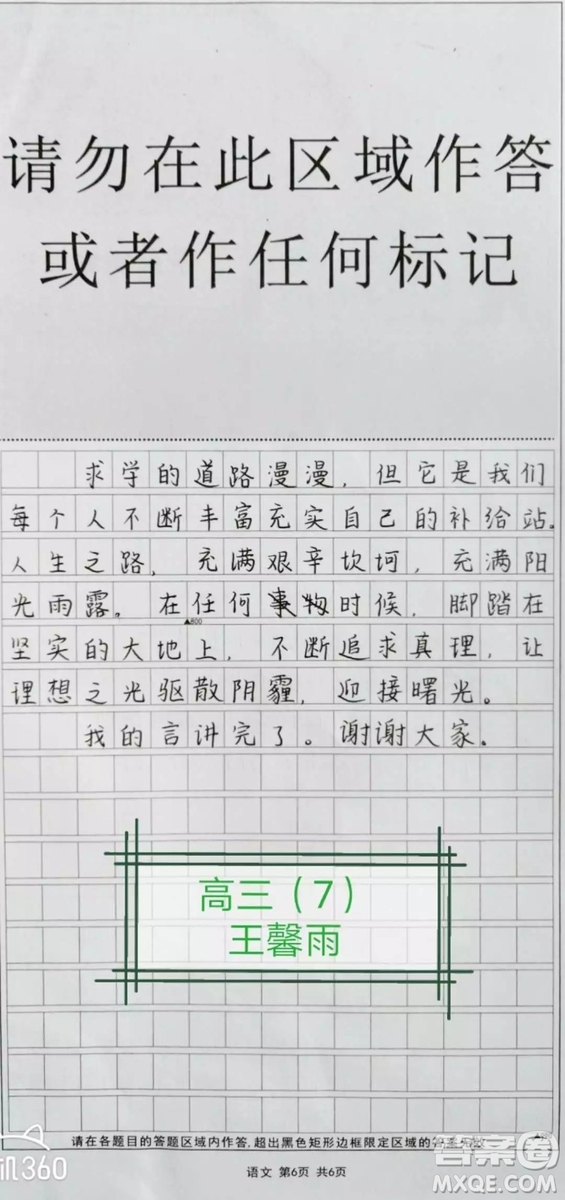 请勿在此区域作答
或者作任何标记
求学的道路漫漫，但它是我们
每个人不断丰富充实自己的补给站。
人生之路，充满艰辛坎坷，充满阳
光雨露。在任何事物时候，脚踏在
▲800
坚实的大地上，不断追求真理，让
理想之光驱散阴霾，迎接曙光。
我的言讲完了。谢谢大家。
高三（7）
王馨雨
请在各题目的答题区域内作答,超出黑色矩形边框限定区域的答案无效
机360
语文 第6页 共6页
答案圈
MXQE.COM